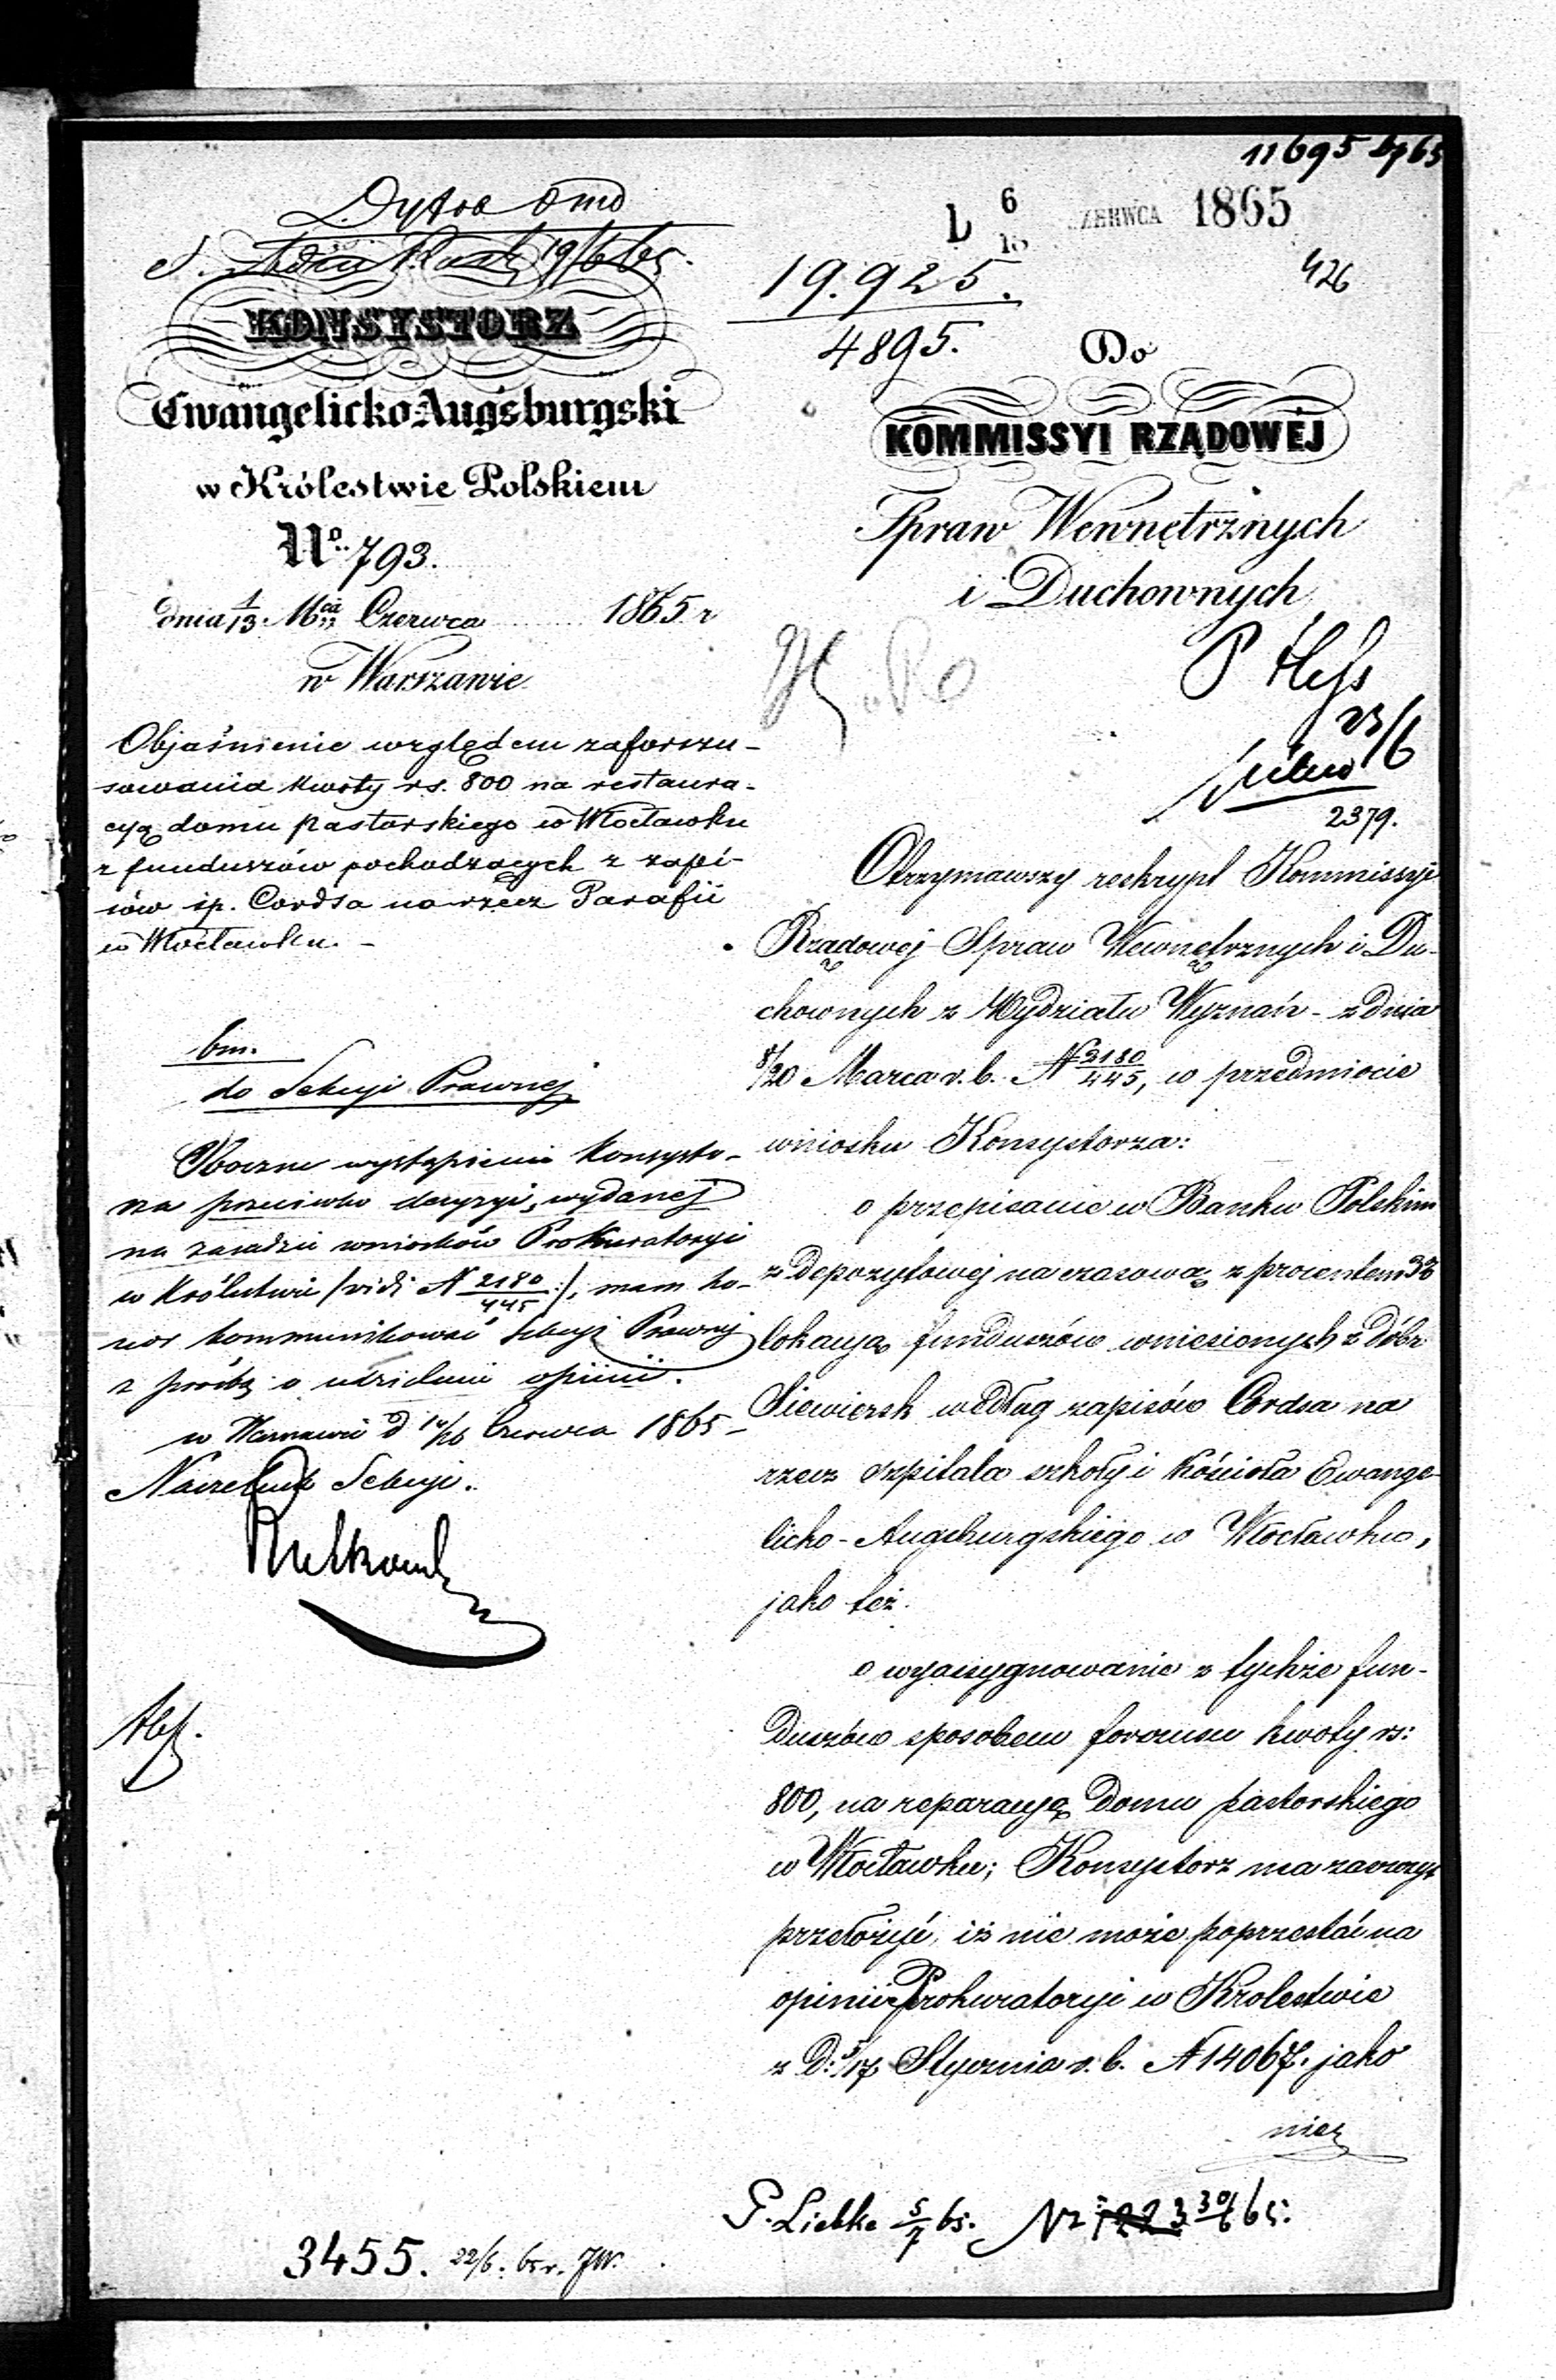 11695
6 CZERWCA 1865
18
19.925.
4895.
426
19/6 65.
KONSYSTORZ
Ewangelicko-Augsburgski
w Królestwie Polskiem
No. 793.
dnia 1/13 Mca Czerwca 1865 r
w Warszawie
Objaśnienie względem zaforszu-
sowania kwoty rs. 800 na restaura-
cyą domu pastorskiego w Włocławku
z funduszów pochodzących z zapi-
sów śp. Cordsa na rzecz Parafii
w Włocławku. –
bm.
do Sekcyi Prawnej
Oboczne wystąpienie Konsysto-
rza przeciwko decyzyi, wydanej
na zasadzie wniosków Prokuratoryi
w Królestwie /vidi N 2180/445 :/, mam ho-
nor kommunikować Sekcyi Prawnej
z prośbą o udzielenie opinii.
w Warszawie d 14/26 Czerwca 1865 –
Naczelnik Sekcyi.
Do
KOMMISSYI RZĄDOWEJ
Spraw Wewnętrznych
i Duchownych
P Hefs
23/6
2379.
Otrzymawszy reskrypt Kommissyi
Rządowej Spraw Wewnętrznych i Du-
chownych z Wydziału Wyznań – z dnia
8/20 Marca r. b. N 2180/445, w przedmiocie
wniosku Konsystorza:
o przepisanie w Banku Polskim
z depozytowej na czasową z procentem
lokacyą funduszów wniesionych z dóbr
Siewiersk według zapisów Cordsa na
rzecz szpitala szkoły i kościoła Ewange-
licko-Augsburgskiego w Włocławku,
jako też.
o wyassygnowanie z tychże fun-
duszów sposobem forszusu kwoty rs:
800, na reparacyą Domu pastorskiego
w Włocławku; Konsystorz ma zaszczyt
przełożyć, iż nie może poprzestać na
opinii Prokuratoryi w Krolestwie
z D: 5/17 Stycznia r. b. N 14067. jako
niez
P. Liebke 5/7 65. Nr 1223 30/6 65.
3455. 22/6. 65 r. JW.